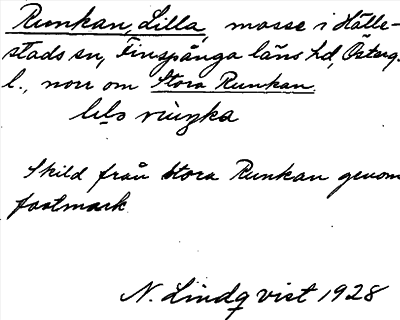 Runkan, Lilla, mosse i Hälle-
stads sn, Finspånga läns hd, Österg.
l., norr om Stora Runkan.
Skild från Stora Runkan genom
fastmark
N. Lindqvist 1928